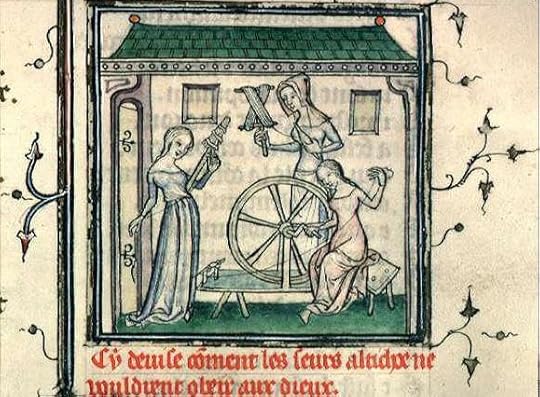 Cy deuise cõment les seurs altichoe ne
vouldrent obeir aux dieux.